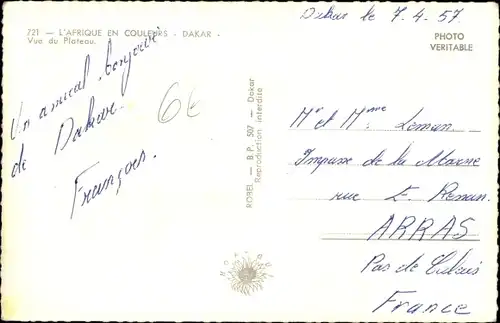 721 - L'AFRIQUE EN COULEURS - DAKAR -
Vue du Plateau.
Dakar le 7-4-57
PHOTO
VERITABLE
Un amical bonjour
de Dakar.
François.
66
ROBEL - B.P. 507 - Dakar
Reproduction interdite
Mr et Mme Leman
Impasse de la Marne
rue E.
ARRAS
Pas de Calais
France